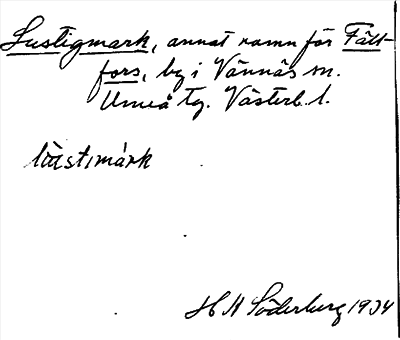 Lustigmark, annat namn för Fält-
fors, by i Vännäs sn.
Umeå tg. Västerb. l.
lùstımárk
H H Söderberg 1934